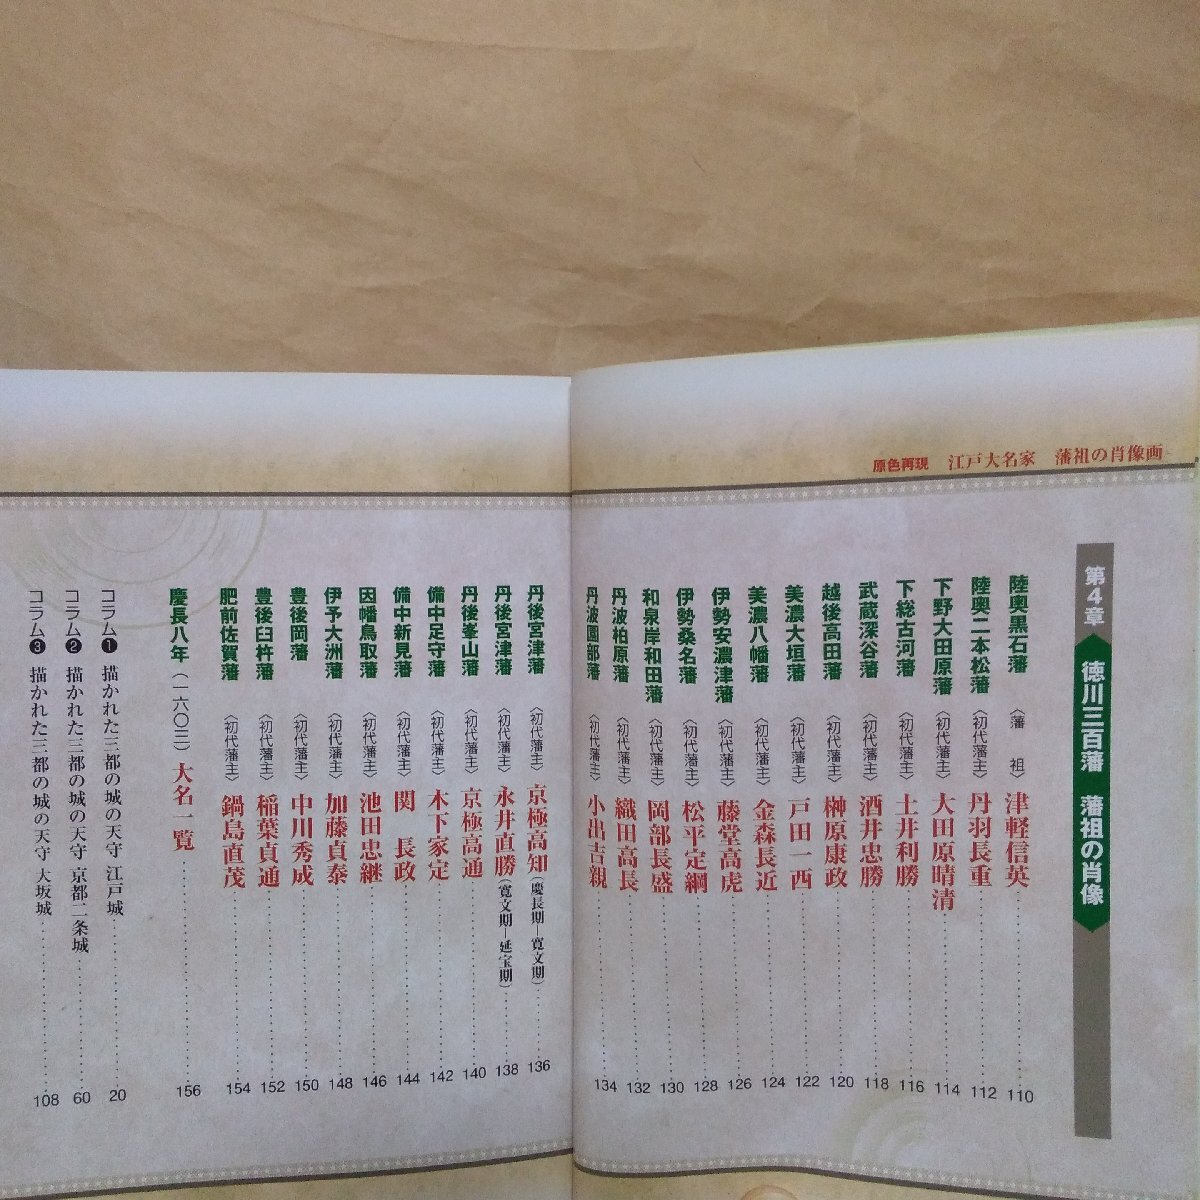 原色再現　江戸大名家　藩祖の肖像画
第4章　徳川三百藩　藩祖の肖像
陸奥黒石藩〈藩　祖〉津軽信英 110
陸奥二本松藩〈初代藩主〉丹羽長重 112
下野大田原藩〈初代藩主〉大田原晴清 114
下総古河藩〈初代藩主〉土井利勝 116
武蔵深谷藩〈初代藩主〉酒井忠勝 118
越後高田藩〈初代藩主〉榊原康政 120
美濃大垣藩〈初代藩主〉戸田一西 122
美濃八幡藩〈初代藩主〉金森長近 124
伊勢安濃津藩〈初代藩主〉藤堂高虎 126
伊勢桑名藩〈初代藩主〉松平定綱 128
和泉岸和田藩〈初代藩主〉岡部長盛 130
丹波柏原藩〈初代藩主〉織田高長 132
丹波園部藩〈初代藩主〉小出吉親 134
丹後宮津藩〈初代藩主〉京極高知（慶長期―寛文期） 136
丹後宮津藩〈初代藩主〉永井直勝（寛文期―延宝期） 138
丹後峯山藩〈初代藩主〉京極高通 140
備中足守藩〈初代藩主〉木下家定 142
備中新見藩〈初代藩主〉関　長政 144
因幡鳥取藩〈初代藩主〉池田忠継 146
伊予大洲藩〈初代藩主〉加藤貞泰 148
豊後岡藩〈初代藩主〉中川秀成 150
豊後臼杵藩〈初代藩主〉稲葉貞通 152
肥前佐賀藩〈初代藩主〉鍋島直茂 154
慶長八年（一六〇三）大名一覧 156
コラム❶　描かれた三都の城の天守 江戸城 20
コラム❷　描かれた三都の城の天守 京都二条城 60
コラム❸　描かれた三都の城の天守 大坂城 108